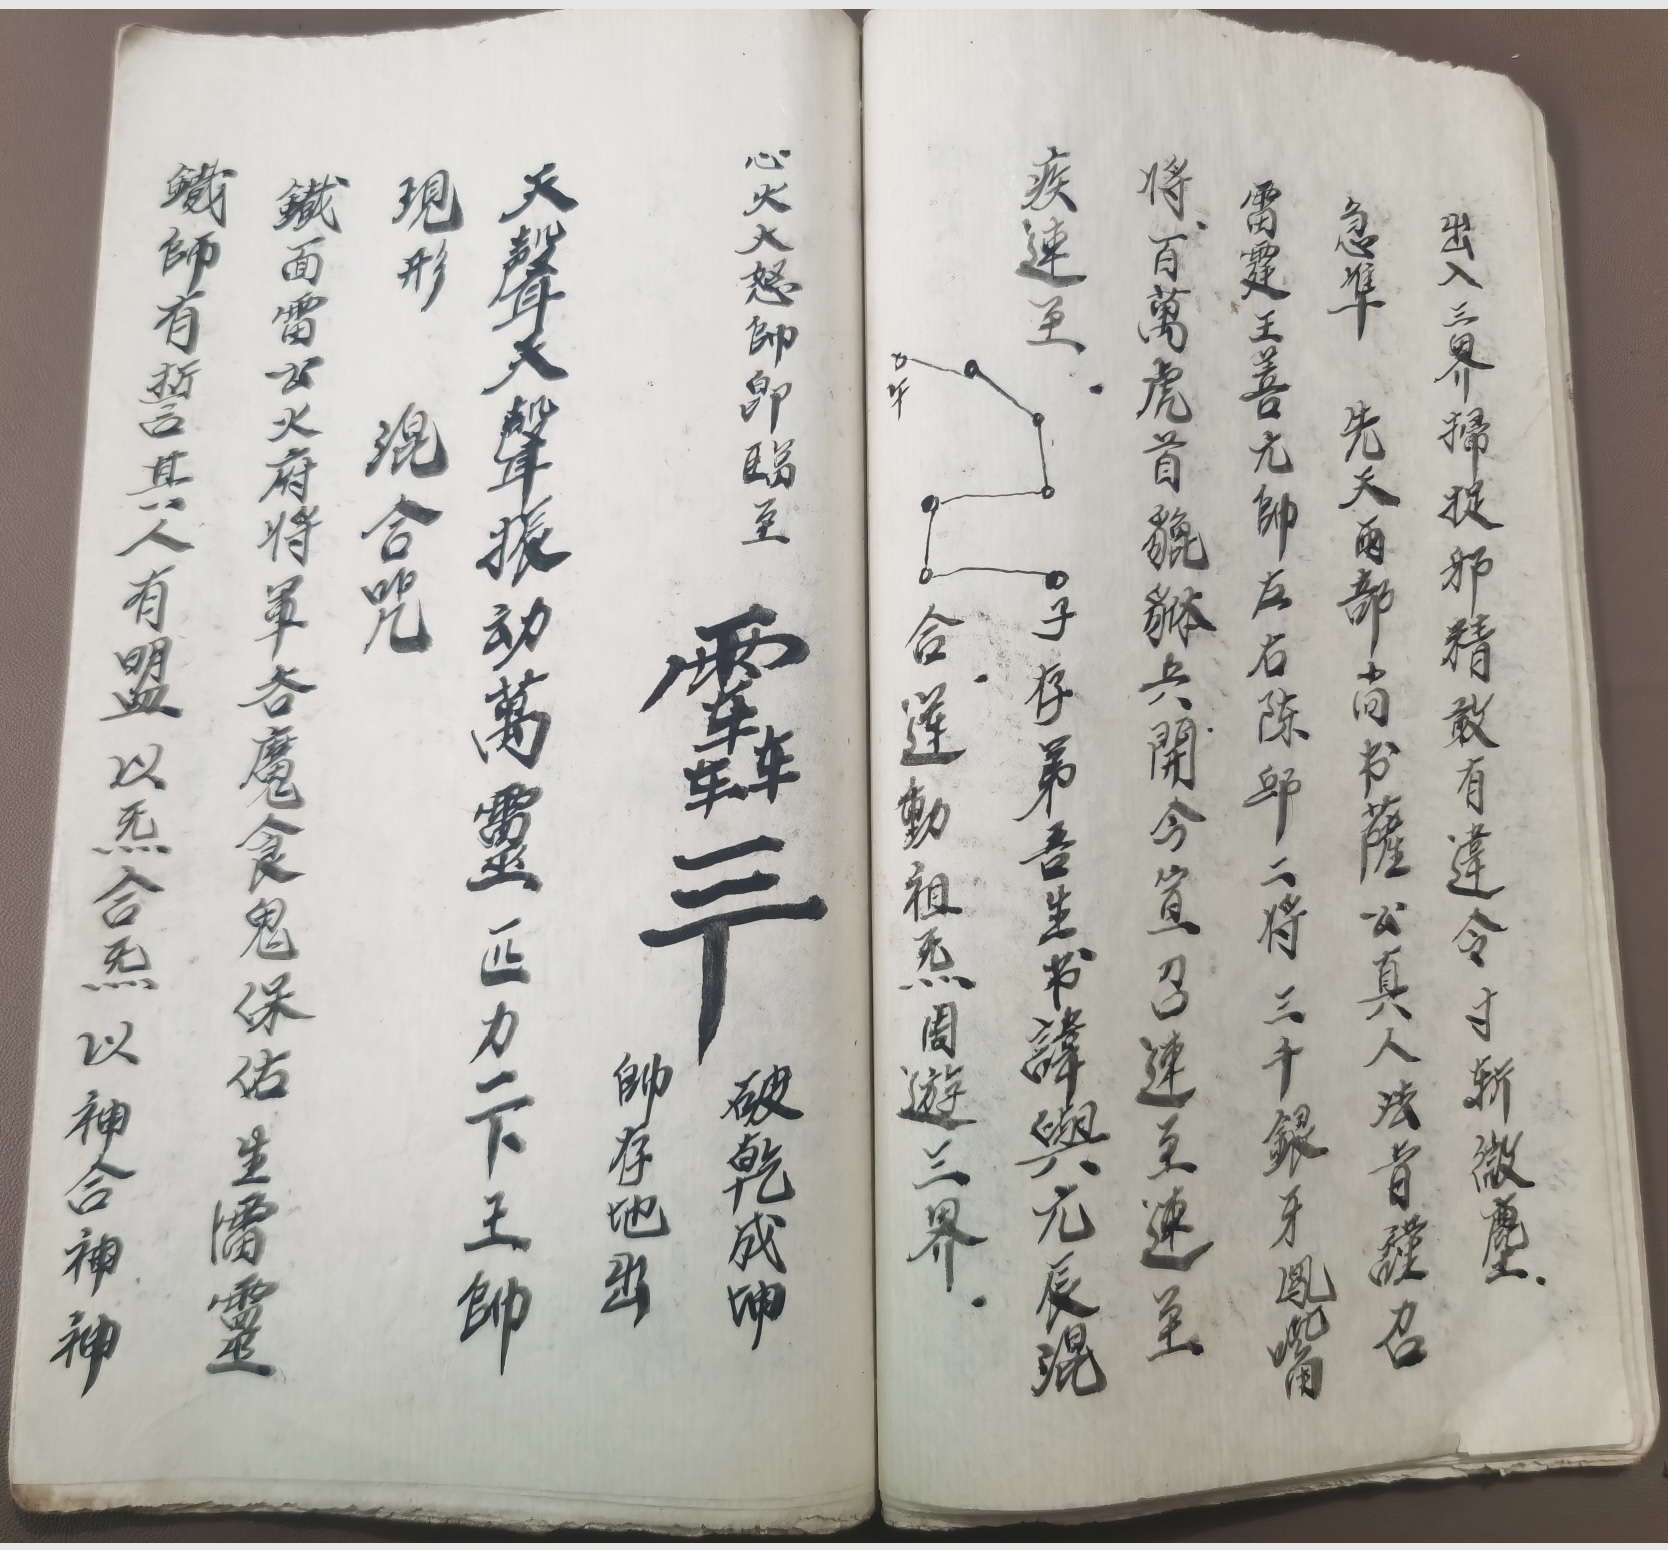 出入三界掃捉邪精敢有違令寸斬微塵
急準　先天兩部尚书薩公真人法旨謹召
雷霆王善元帥左右陈邱二将三千銀牙鳳嘴
将百萬虎首貔貅兵開今宣召速至速至
疾速至
子存弟吾生书諱與元辰混
合運動祖炁周遊三界
心火大怒帥即臨至
破乾成坤
帥存地出
天聲天聲振动萬靈匹力一下王帥
現形　混合咒
鐵面雷公火府将軍吞魔食鬼保佑生靈
鐵師有誓其人有盟以炁合炁以神合神神